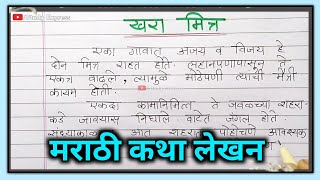 खरा मित्र
एका गावात अजय व विजय हे
दोन मित्र राहत होते. लहानपणापासून ते
एकत्र वाढले, त्यामुळे मोठेपणी त्यांची मैत्री
कायम होती.
एकदा कामानिमित्त ते जवळच्या शहरा-
कडे जावयास निघाले वाटेत जंगल होते.
आत शहरात पोहोचणे आवश्यक
मराठी कथा लेखन